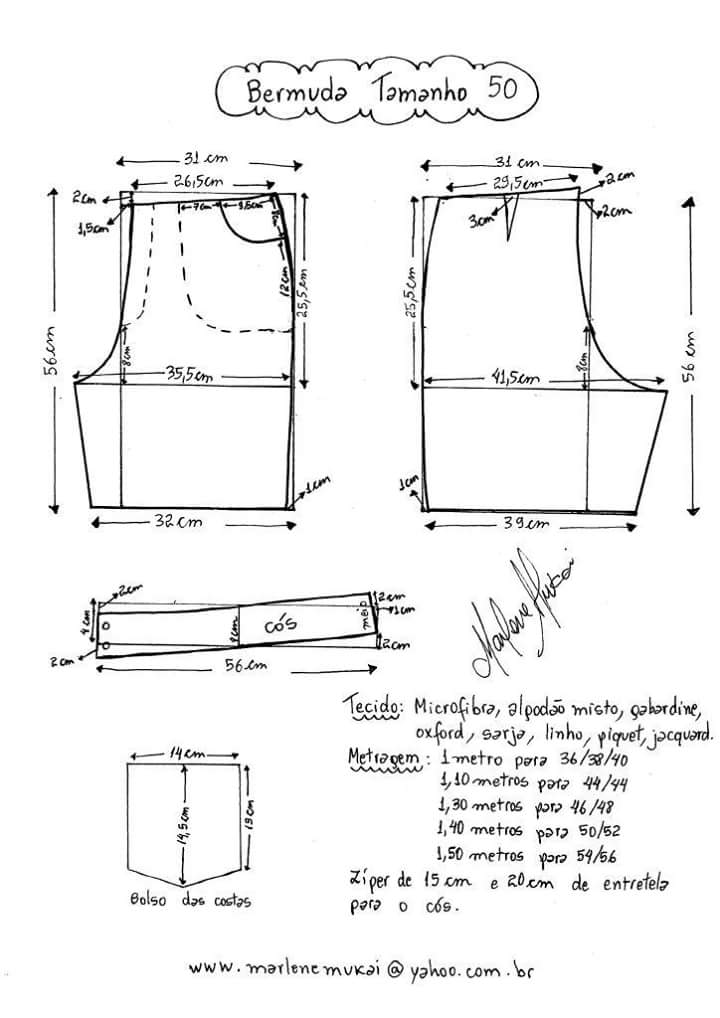 Bermuda Tamanho 50
31 cm
26,5cm
2cm
1,5cm
7cm
9,5cm
12cm
25,5cm
56cm
8cm
35,5cm
1cm
32cm
31 cm
29,5cm
2cm
3cm
2cm
25,5cm
56cm
8cm
41,5cm
1cm
39cm
2cm
4cm
2cm
cós
meio
2cm
1cm
2cm
56cm
Marlene Mukai
Tecido: Microfibra, algodão misto, gabardine,
oxford, sarja, linho, piquet, jacquard.
Metragem: 1 metro para 36/38/40
1,10 metros para 44/44
1,30 metros para 46/48
1,40 metros para 50/52
1,50 metros para 54/56
Zíper de 15 cm e 20cm de entretela
para o cós.
14cm
14,5cm
13cm
Bolso das costas
www.marlenemukai@yahoo.com.br